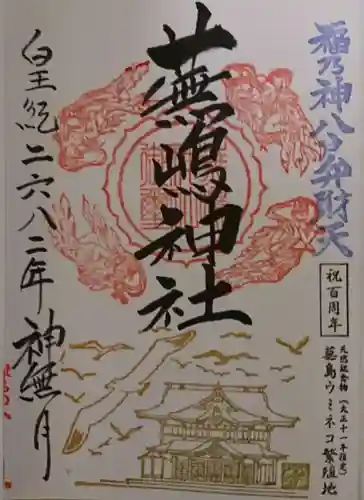 稲乃神八臼弁財天
祝百周年
天然紀念物(大正十一年指定)
蕪島ウミネコ繁殖地
蕪嶋神社
皇紀二六八二年
神無月